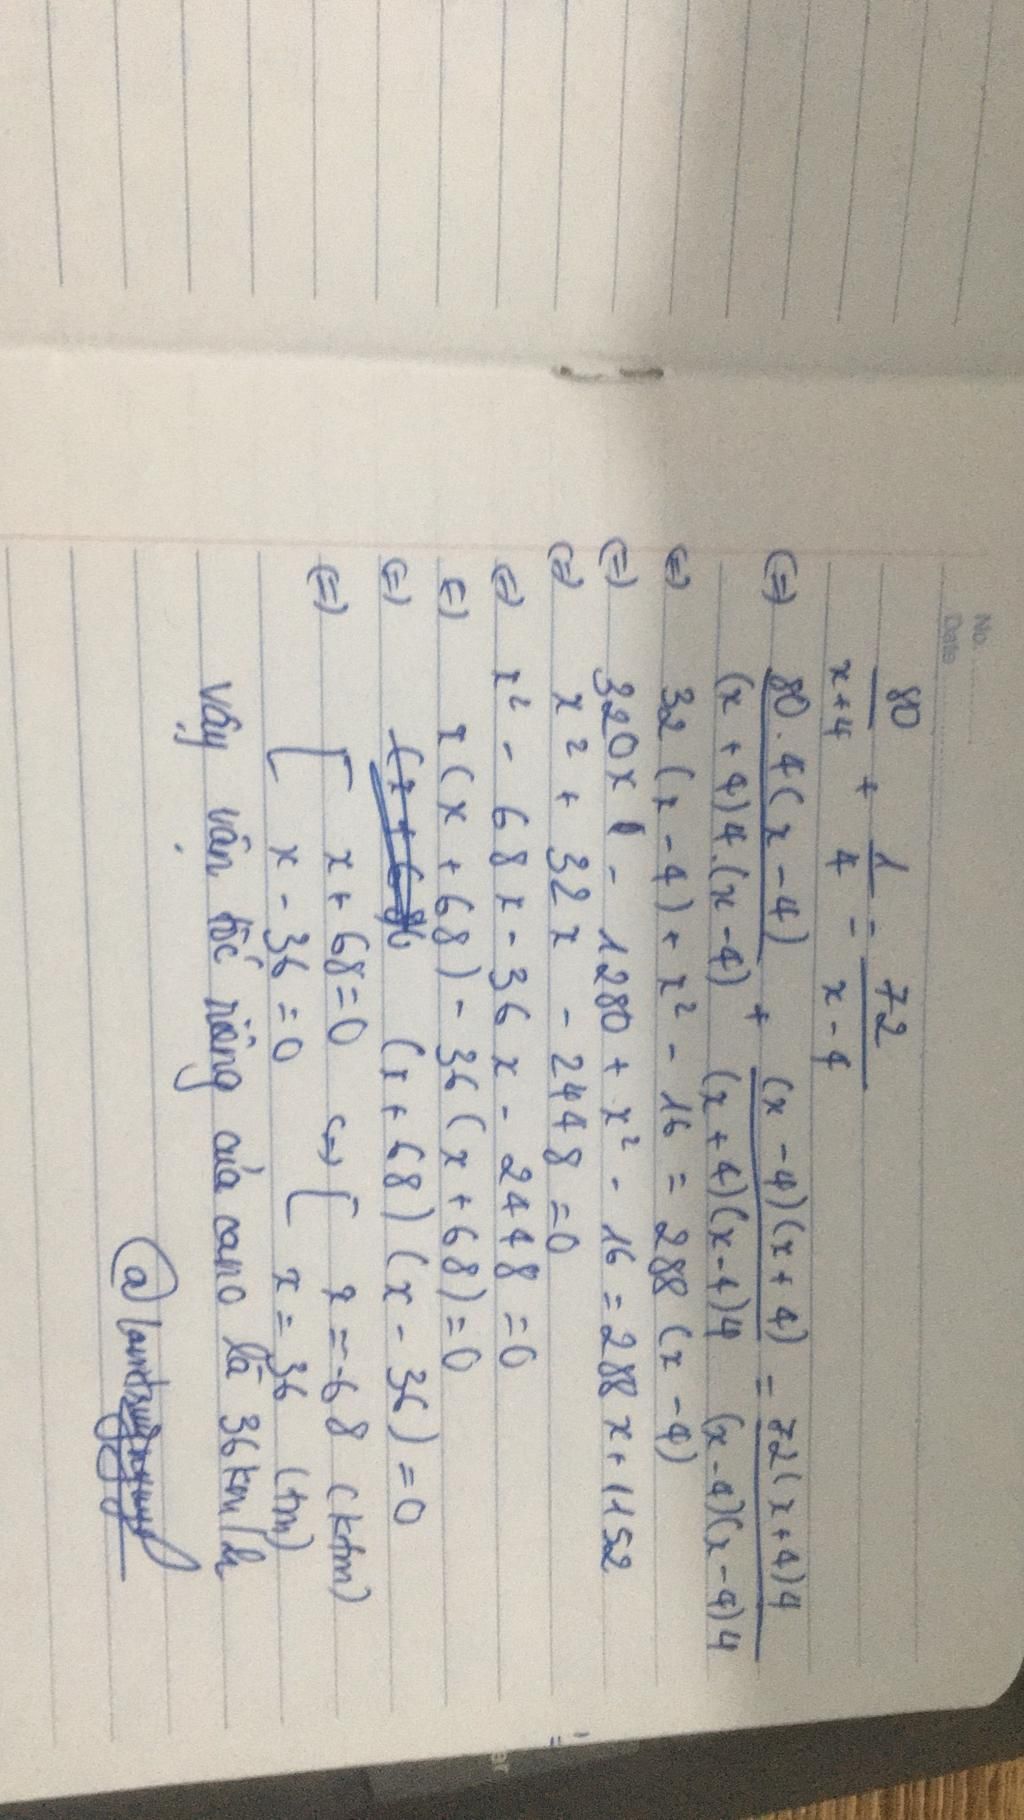 No.
Date
80/(x+4) + 1/4 = 72/(x-4)
(=) 80.4(x-4)/(x+4)4.(x-4) + (x-4)(x+4)/(x+4)(x-4)4 = 72(x+4)4/(x-4)(x-4)4
(=) 32(x-4) + x² - 16 = 288(x-4)
(=) 320x - 1280 + x² - 16 = 288x + 1152
(=) x² + 32x - 2448 = 0
(=) x² - 68x - 36x - 2448 = 0
(=) x(x+68) - 36(x+68) = 0
(=) (x+68)(x-36) = 0
(=) [ x + 68 = 0 (=) [ x = -68 (ktm)
x - 36 = 0 x = 36 (tm)
Vậy vận tốc riêng của cano là 36 km/h